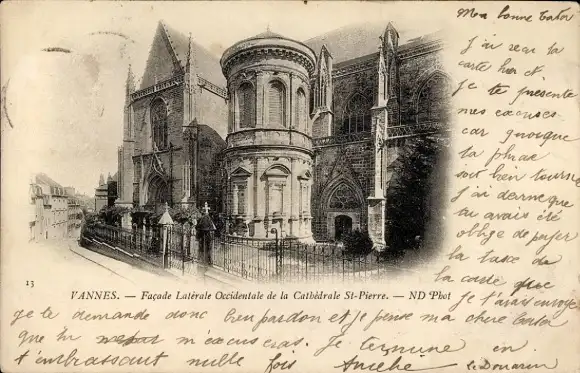 Ma bonne
J'ai reçu ta
carte hier et
je te présente
mes excuses
car quoique
ta phrase
soit bien tournée
j'ai
tu avais été
obligé de payer
la taxe de
la carte que
je t'avais envoyée
13
VANNES. — Façade Latérale Occidentale de la Cathédrale St-Pierre. — ND Phot
je te demande donc bien pardon et je pense ma chere
que tu m'excuseras. Je termine en
t'embrassant mille fois